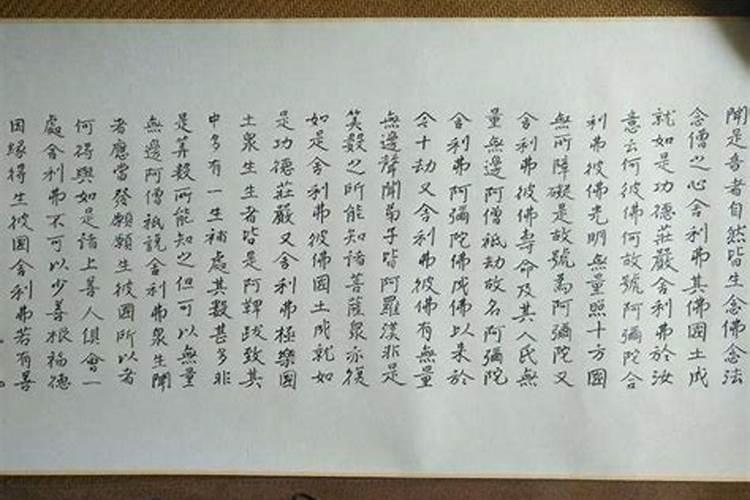 聞是音者自然皆生念佛念法
念僧之心舍利弗其佛國土成
就如是功德莊嚴舍利弗於汝
意云何彼佛何故號阿彌陀舍
利弗彼佛光明無量照十方國
無所障礙是故號為阿彌陀又
舍利弗彼佛壽命及其人民無
量無邊阿僧祇劫故名阿彌陀
舍利弗阿彌陀佛成佛以來於
今十劫又舍利弗彼佛有無量
無邊聲聞弟子皆阿羅漢非是
算數之所能知諸菩薩眾亦復
如是舍利弗彼佛國土成就如
是功德莊嚴又舍利弗極樂國
土眾生生者皆是阿鞞跋致其
中多有一生補處其數甚多非
是算數所能知之但可以無量
無邊阿僧祇說舍利弗眾生聞
者應當發願願生彼國所以者
何得與如是諸上善人俱會一
處舍利弗不可以少善根福德
因緣得生彼國舍利弗若有善